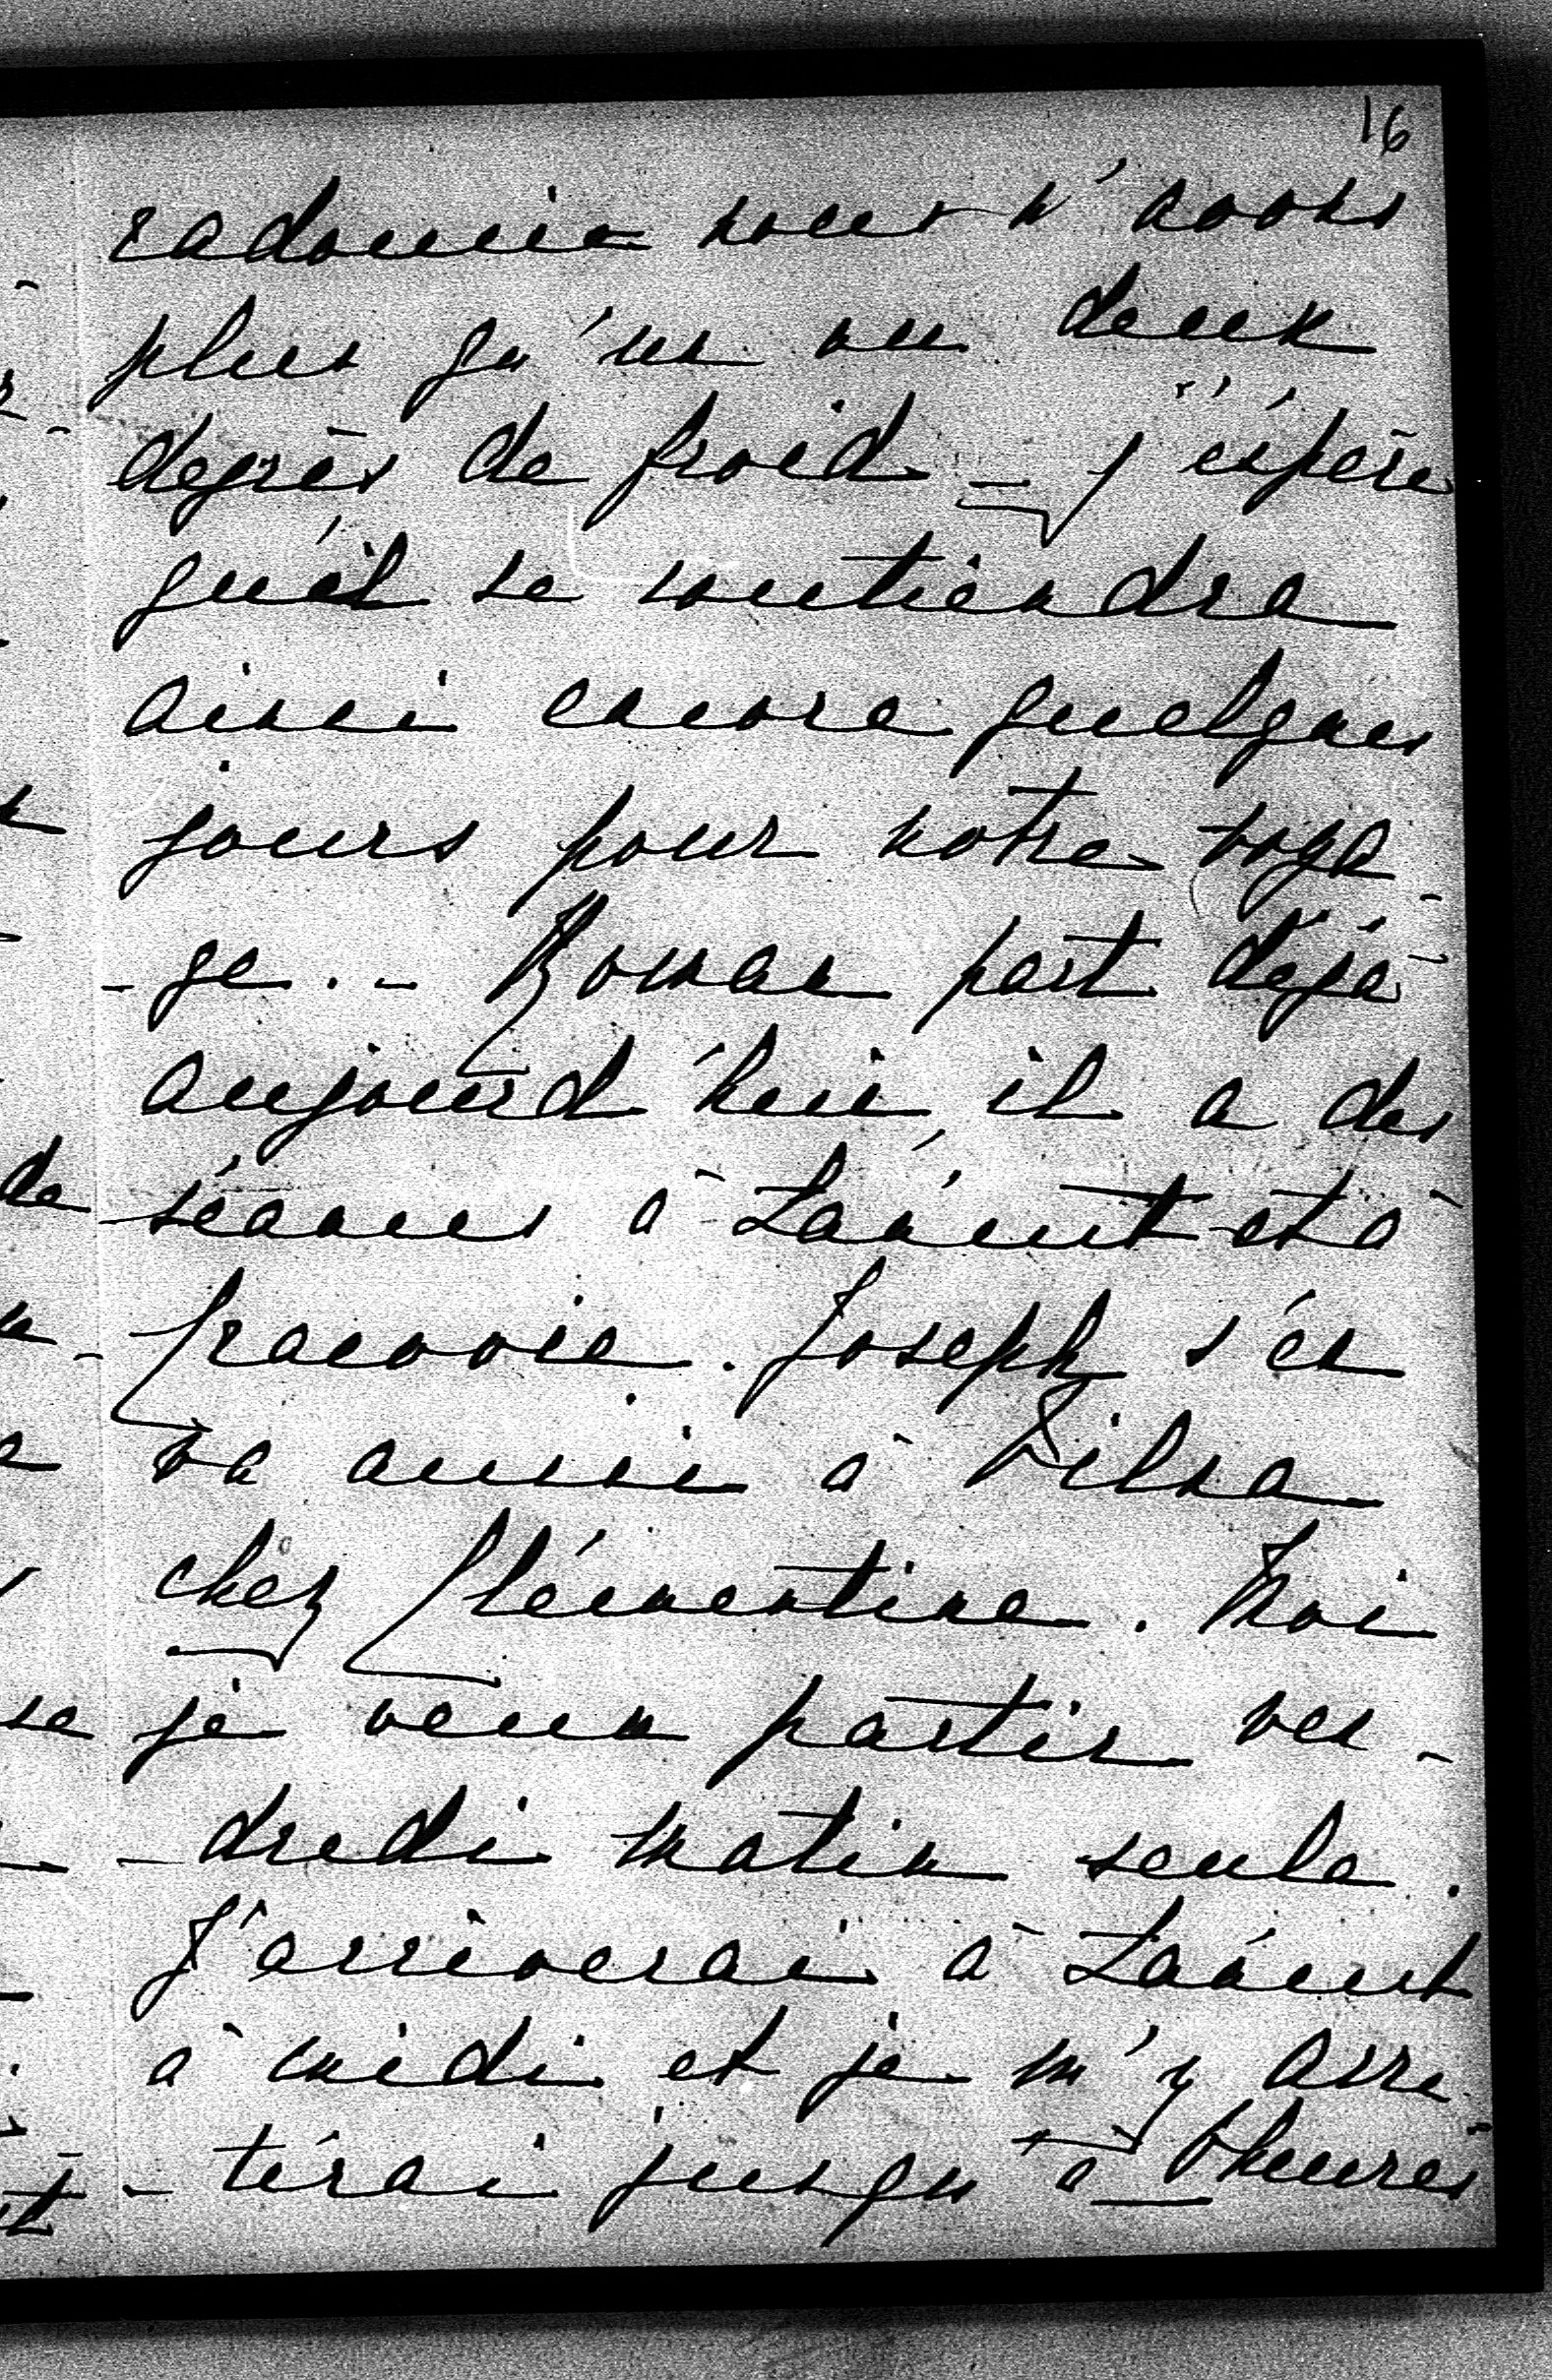 16
radoucie nous n'avons
plus qu'un ou deux
degrès de froid _ j'éspère
qu'il se soutiendra
ainsi encore quelques
jours pour notre voya-
-ge. - Roman part déjà
aujourd'hui, il a des
séances à Łańcut et à
Cracovie. Joseph s'en
va aussi à Vilna
chez Clémentine. Moi
je veux partir ven-
-dredi matin seule.
J'arriverai à Łańcut
à midi et je m'y arrê
-terai jusqu'à heures